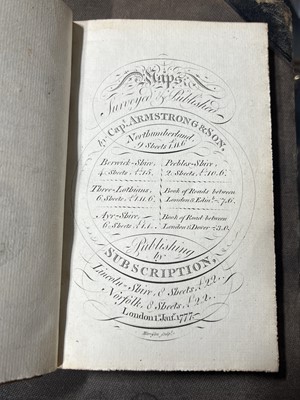 Maps
Surveyed & Published
by Capt. ARMSTRONG & SON,
Northumberland
9 Sheets 1.11.6
Berwick-Shire, Peebles-Shire,
4 Sheets 2 Sheets 10.6.
Three Lothians, Book of Roads between
6 Sheets £1.11.6. London & Edinr. 7.6.
Ayr-Shire, Book of Road between
6 Sheets £1.1. London & Dover
Publishing
by
SUBSCRIPTION,
Lincoln-Shire 8 Sheets £2.2.
Norfolk, 6 Sheets £2.2.
London 1st Jany. 1777.
sculpt.